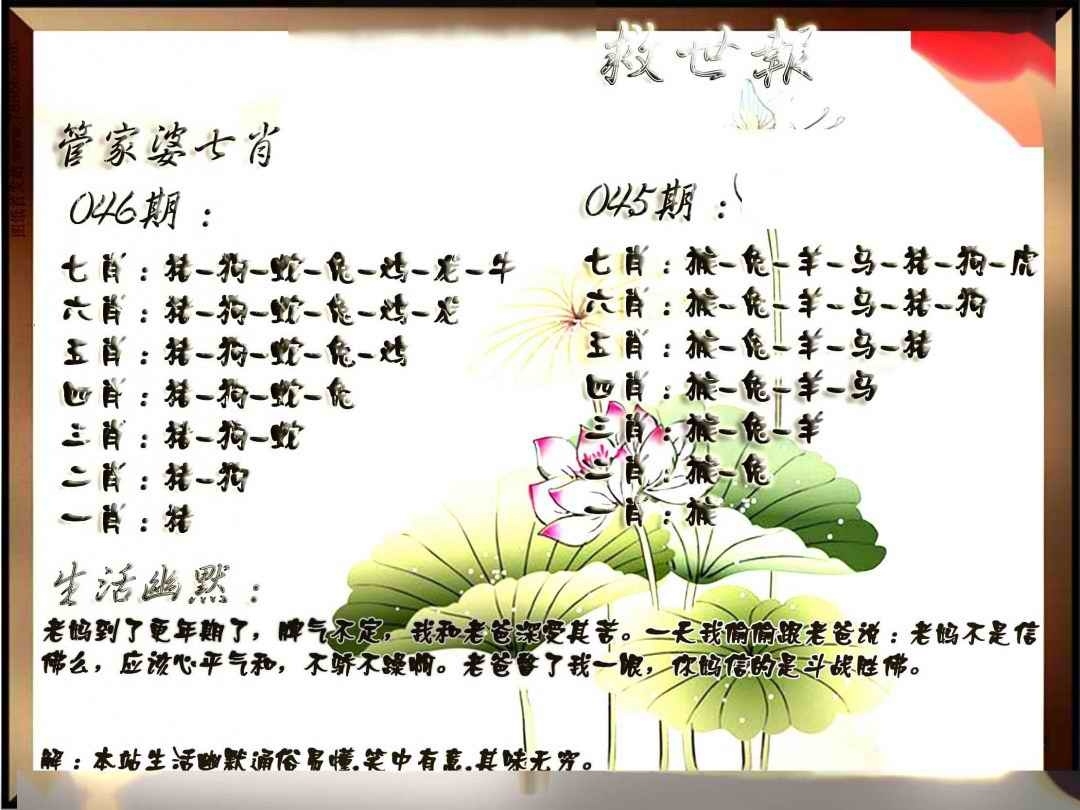 救世報
管家婆七肖
046期：
七肖：猪-狗-蛇-兔-鸡-龙-牛
六肖：猪-狗-蛇-兔-鸡-龙
五肖：猪-狗-蛇-兔-鸡
四肖：猪-狗-蛇-兔
三肖：猪-狗-蛇
二肖：猪-狗
一肖：猪
045期：
七肖：猴-兔-羊-马-猪-狗-虎
六肖：猴-兔-羊-马-猪-狗
五肖：猴-兔-羊-马-猪
四肖：猴-兔-羊-马
三肖：猴-兔-羊
二肖：猴-兔
一肖：猴
生活幽默：
老妈到了更年期了，脾气不定，我和老爸深受其苦。一天我偷偷跟老爸说：老妈不是信
佛么，应该心平气和，不骄不躁啊。老爸瞥了我一眼，你妈信的是斗战胜佛。
解：本站生活幽默通俗易懂,笑中有意,其味无穷。